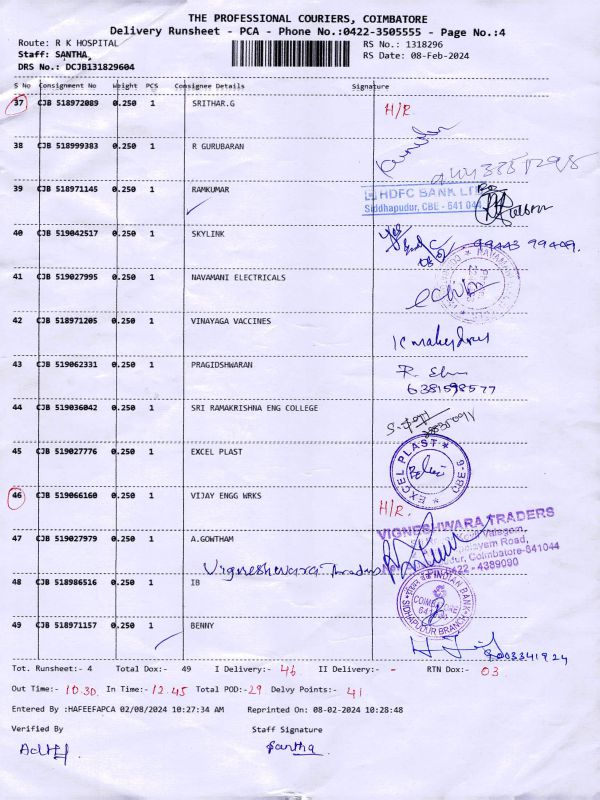 THE PROFESSIONAL COURIERS, COIMBATORE
Delivery Runsheet - PCA - Phone No.:0422-3505555 - Page No.:4
Route: R K HOSPITAL RS No.: 1318296
Staff: SANTHA, RS Date: 08-Feb-2024
DRS No.: DCJB131829604
S No Consignment No Weight PCS Consignee Details Signature
37 CJB 518972089 0.250 1 SRITHAR.G H/R
38 CJB 518999383 0.250 1 R GURUBARAN
39 CJB 518971145 0.250 1 RAMKUMAR
HDFC BANK LTD
Siddhapudur, CBE - 641 044
40 CJB 519042517 0.250 1 SKYLINK 99443 99409.
41 CJB 519027995 0.250 1 NAVAMANI ELECTRICALS
42 CJB 518971205 0.250 1 VINAYAGA VACCINES
43 CJB 519062331 0.250 1 PRAGIDSHWARAN
6381598577
44 CJB 519036042 0.250 1 SRI RAMAKRISHNA ENG COLLEGE
45 CJB 519027776 0.250 1 EXCEL PLAST
EXCEL PLAST CBE-6
46 CJB 519066160 0.250 1 VIJAY ENGG WRKS H/R.
VIGNESHWARA TRADERS
47 CJB 519027979 0.250 1 A.GOWTHAM
Coimbatore-641044
0422 - 4389090
Vigneshwara Traders
48 CJB 518986516 0.250 1 IB
INDIAN BANK
SIDHAPUDUR BRANCH
COIMBATORE
49 CJB 518971157 0.250 1 BENNY
Tot. Runsheet:- 4 Total Dox:- 49 I Delivery:- 46 II Delivery:- - RTN Dox:- 03.
Out Time:- 10.30. In Time:- 12.45 Total POD:- 29 Delvy Points:- 41
Entered By :HAFEEFAPCA 02/08/2024 10:27:34 AM Reprinted On: 08-02-2024 10:28:48
Verified By Staff Signature
Santha